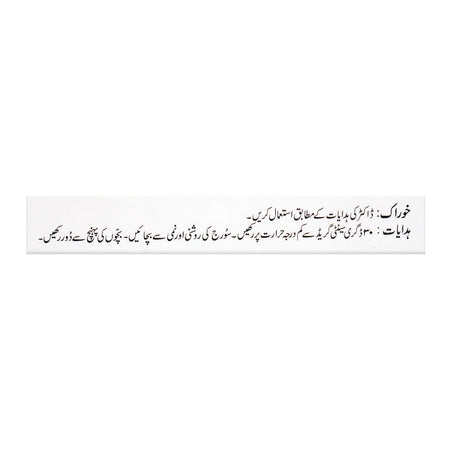 خوراک: ڈاکٹر کی ہدایات کے مطابق استعمال کریں۔
ہدایات: ۳۰ ڈگری سینٹی گریڈ سے کم درجہ حرارت پر رکھیں۔ سُورج کی روشنی اور نمی سے بچائیں۔ بچّوں کی پہنچ سے دُور رکھیں۔